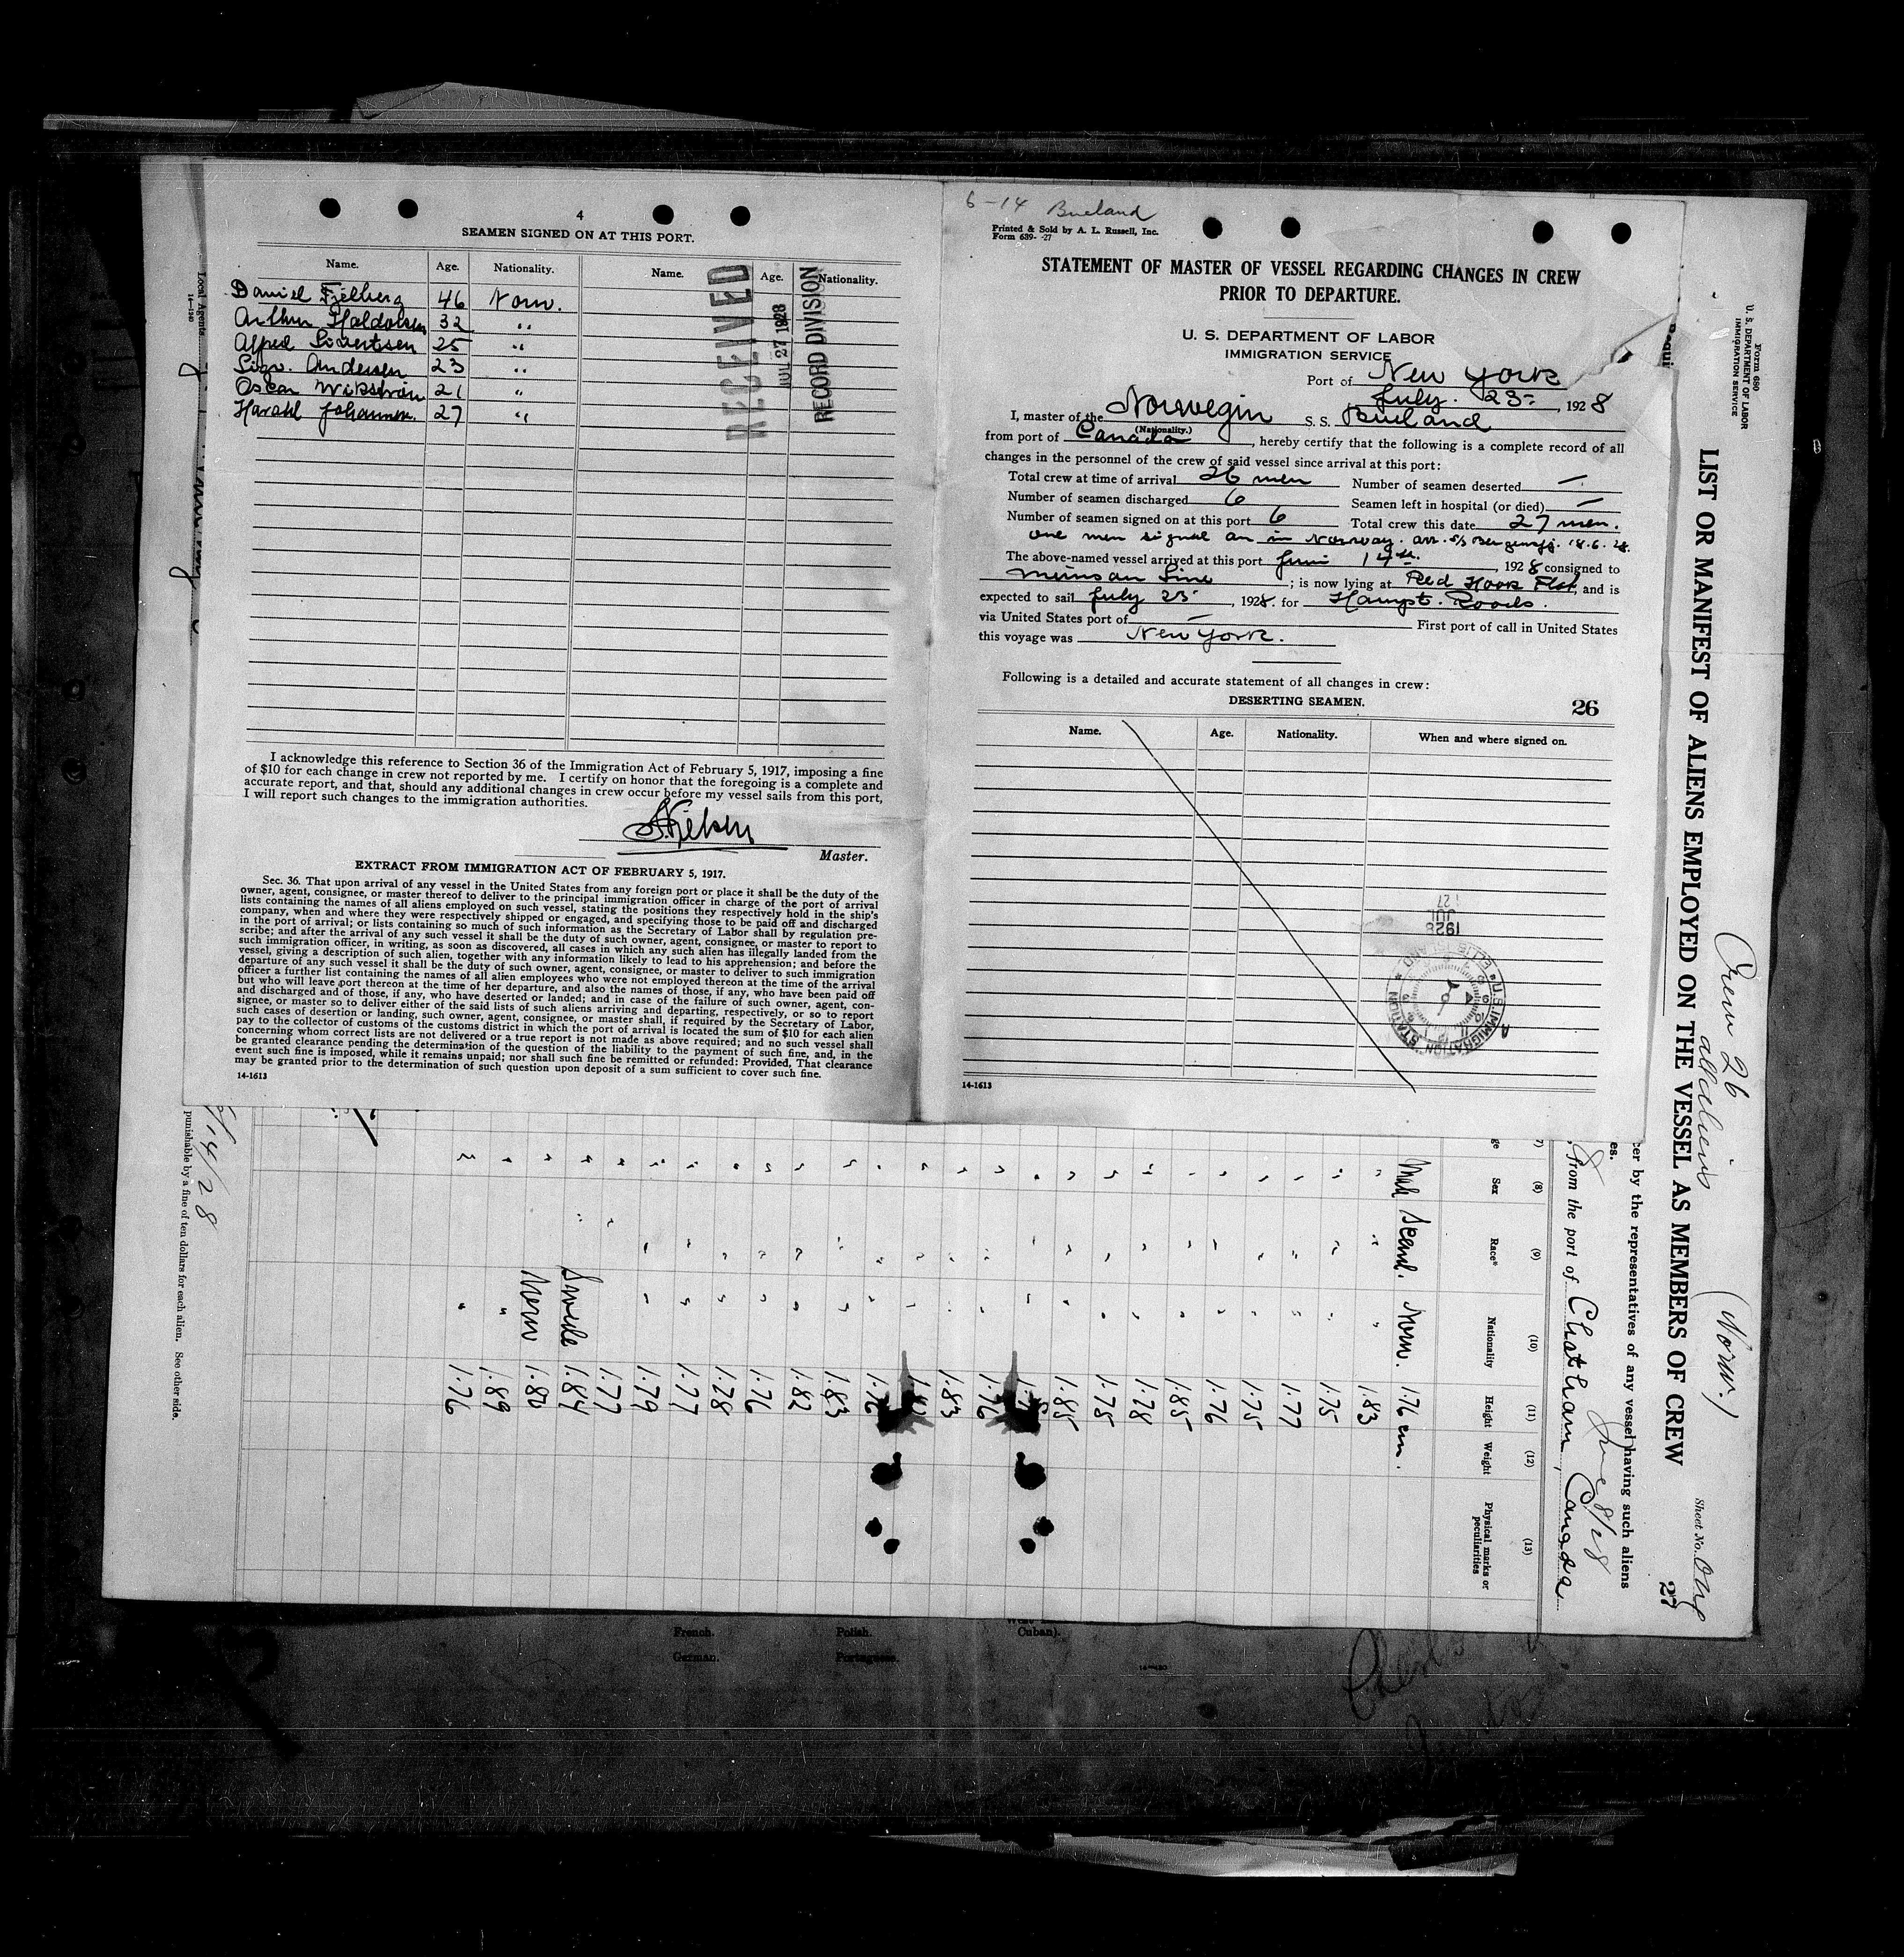 4
SEAMEN SIGNED ON AT THIS PORT.
Name. Age. Nationality. Name. Age. Nationality.
Daniel 46 Norw.
Arthur 32 "
Alfred Sivertsen 25 "
Sigv. Andersen 23 "
Oscar Wikström 21 "
Harald Johannsen. 27 "
RECEIVED
JUL 27 1928
RECORD DIVISION
I acknowledge this reference to Section 36 of the Immigration Act of February 5, 1917, imposing a fine
of $10 for each change in crew not reported by me. I certify on honor that the foregoing is a complete and
accurate report, and that, should any additional changes in crew occur before my vessel sails from this port,
I will report such changes to the immigration authorities.
Master.
EXTRACT FROM IMMIGRATION ACT OF FEBRUARY 5, 1917.
Sec. 36. That upon arrival of any vessel in the United States from any foreign port or place it shall be the duty of the
owner, agent, consignee, or master thereof to deliver to the principal immigration officer in charge of the port of arrival
lists containing the names of all aliens employed on such vessel, stating the positions they respectively hold in the ship's
company, when and where they were respectively shipped or engaged, and specifying those to be paid off and discharged
in the port of arrival; or lists containing so much of such information as the Secretary of Labor shall by regulation pre-
scribe; and after the arrival of any such vessel it shall be the duty of such owner, agent, consignee, or master to report to
such immigration officer, in writing, as soon as discovered, all cases in which any such alien has illegally landed from the
vessel, giving a description of such alien, together with any information likely to lead to his apprehension; and before the
departure of any such vessel it shall be the duty of such owner, agent, consignee, or master to deliver to such immigration
officer a further list containing the names of all alien employees who were not employed thereon at the time of the arrival
but who will leave port thereon at the time of her departure, and also the names of those, if any, who have been paid off
and discharged and of those, if any, who have deserted or landed; and in case of the failure of such owner, agent, con-
signee, or master so to deliver either of the said lists of such aliens arriving and departing, respectively, or so to report
such cases of desertion or landing, such owner, agent, consignee, or master shall, if required by the Secretary of Labor,
pay to the collector of customs of the customs district in which the port of arrival is located the sum of $10 for each alien
concerning whom correct lists are not delivered or a true report is not made as above required; and no such vessel shall
be granted clearance pending the determination of the question of the liability to the payment of such fine, and, in the
event such fine is imposed, while it remains unpaid; nor shall such fine be remitted or refunded: Provided, That clearance
may be granted prior to the determination of such question upon deposit of a sum sufficient to cover such fine.
14-1613
6-14 Bueland
Printed & Sold by A. L. Russell, Inc.
Form 689- -27
STATEMENT OF MASTER OF VESSEL REGARDING CHANGES IN CREW
PRIOR TO DEPARTURE.
U. S. DEPARTMENT OF LABOR
IMMIGRATION SERVICE
Port of New York
July. 23-, 1928
I, master of the Norwegin S. S. Bueland
(Nationality.)
from port of Canada, hereby certify that the following is a complete record of all
changes in the personnel of the crew of said vessel since arrival at this port:
Total crew at time of arrival 26 men Number of seamen deserted —
Number of seamen discharged 6 Seamen left in hospital (or died) —
Number of seamen signed on at this port 6 Total crew this date 27 men.
one men signed on in Norway. arr. S/S 18.6.28.
The above-named vessel arrived at this port 14th, 1928 consigned to
Munson Line; is now lying at Red Hook Flat, and is
expected to sail July 23-, 1928. for Hampt. Roads.
via United States port of — First port of call in United States
this voyage was New York.
Following is a detailed and accurate statement of all changes in crew:
DESERTING SEAMEN. 26
Name. Age. Nationality. When and where signed on.
1928
JUL
27
U.S. IMMIGRATION STATION
ELLIS ISLAND
14-1613
Form 680
U. S. DEPARTMENT OF LABOR
IMMIGRATION SERVICE
LIST OR MANIFEST OF ALIENS EMPLOYED ON THE VESSEL AS MEMBERS OF CREW
Crew 26
all aliens
(Norw.)
Sheet No. One
27
cer by the representatives of any vessel having such aliens
es.
June 8/28
8, from the port of Chatham, Canada
(8) (9) (10) (11) (12) (13)
Sex Race* Nationality Height Weight Physical marks or peculiarities
Male Scand. Norw. 1.76 cm.
" " " 1.83
" " " 1.75
" " " 1.77
" " " 1.75
" " " 1.76
" " " 1.85
" " " 1.78
" " " 1.75
" " " 1.85
" " "
" " " 1.76
" " " 1.83
" " "
" " " 1.76
" " " 1.83
" " " 1.82
" " " 1.76
" " " 1.78
" " " 1.77
" " " 1.79
" " 1.77
" " Swede 1.84
" Norw 1.80
" " 1.89
" " 1.76
Local Agents
14-1240
6/14/28
punishable by a fine of ten dollars for each alien. See other side.
French. Polish. Cuban).
German. Portuguese.